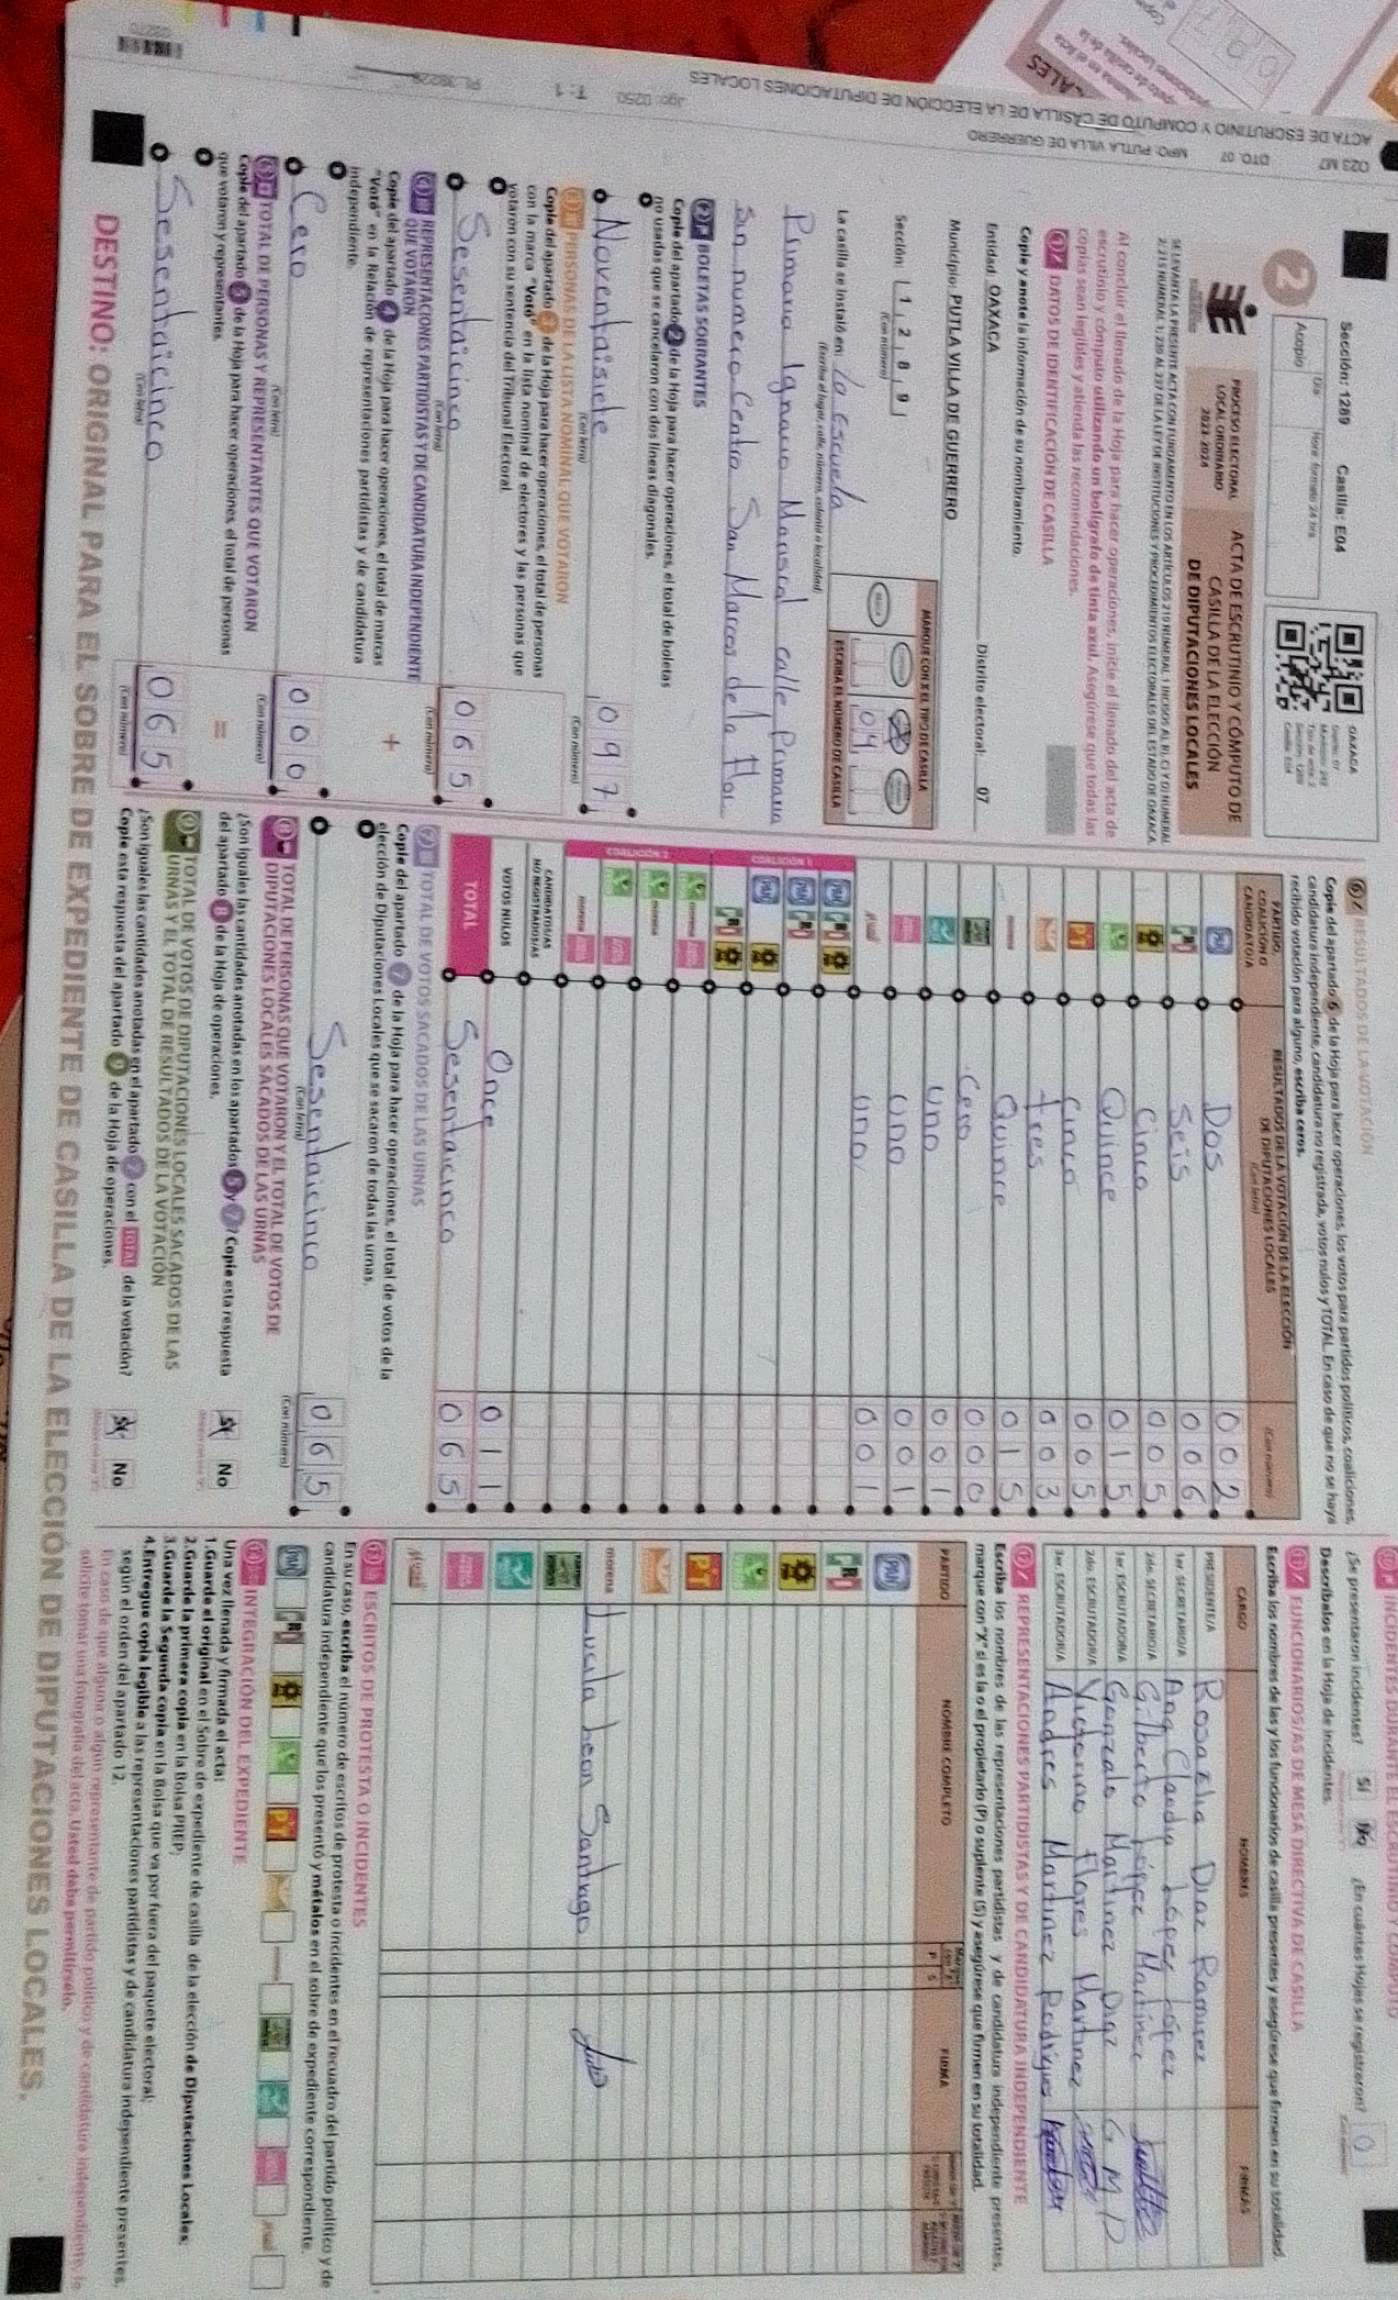 Sección: 1289 Casilla: E04
OAXACA
2
Acopio
Día
Hora: formato 24 hrs
PROCESO ELECTORAL
LOCAL ORDINARIO
2023-2024
ACTA DE ESCRUTINIO Y CÓMPUTO DE
CASILLA DE LA ELECCIÓN
DE DIPUTACIONES LOCALES
Al concluir el llenado de la Hoja para hacer operaciones, inicie el llenado del acta de
escrutinio y cómputo utilizando un bolígrafo de tinta azul. Asegúrese que todas las
copias sean legibles y atienda las recomendaciones.
1 DATOS DE IDENTIFICACIÓN DE CASILLA
Copie y anote la información de su nombramiento.
Entidad: OAXACA Distrito electoral: 07
Municipio: PUTLA VILLA DE GUERRERO
Sección: 1 2 8 9
(Con número)
MARQUE CON X EL TIPO DE CASILLA
ESCRIBA EL NÚMERO DE CASILLA
04
La casilla se instaló en: la Escuela
(Escriba el lugar, calle, número, colonia o localidad)
Primaria Ignacio Mariscal calle Primaria
sin numero Centro San Marcos de la Flor
2 BOLETAS SOBRANTES
Copie del apartado 2 de la Hoja para hacer operaciones, el total de boletas
no usadas que se cancelaron con dos líneas diagonales.
Noventaisiete 097
(Con letra) (Con número)
3 PERSONAS DE LA LISTA NOMINAL QUE VOTARON
Copie del apartado 3 de la Hoja para hacer operaciones, el total de personas
con la marca "Votó" en la lista nominal de electores y las personas que
votaron con su sentencia del Tribunal Electoral.
Sesentaicinco 065
(Con letra) (Con número)
4 REPRESENTACIONES PARTIDISTAS Y DE CANDIDATURA INDEPENDIENTE
QUE VOTARON
Copie del apartado 4 de la Hoja para hacer operaciones, el total de marcas
"Votó" en la Relación de representaciones partidistas y de candidatura
independiente.
+
Cero 000
(Con letra) (Con número)
5 TOTAL DE PERSONAS Y REPRESENTANTES QUE VOTARON
Copie del apartado 5 de la Hoja para hacer operaciones, el total de personas
que votaron y representantes.
=
Sesentaicinco 065
(Con letra) (Con número)
6 RESULTADOS DE LA VOTACIÓN
Copie del apartado 6 de la Hoja para hacer operaciones, los votos para partidos políticos, coaliciones,
candidatura independiente, candidatura no registrada, votos nulos y TOTAL. En caso de que no se haya
recibido votación para alguno, escriba ceros.
PARTIDO,
COALICIÓN O
CANDIDATO/A
RESULTADOS DE LA VOTACIÓN DE LA ELECCIÓN
DE DIPUTACIONES LOCALES
(Con letra)
(Con número)
PAN Dos 002
PRD Seis 006
Cinco 005
Quince 015
PT Cinco 005
tres 003
morena Quince 015
Cero 000
Uno 001
Uno 001
Uno 001
COALICIÓN 1
COALICIÓN 2
CANDIDATOS/AS
NO REGISTRADOS/AS
VOTOS NULOS Once 011
TOTAL Sesentaicinco 065
7 TOTAL DE VOTOS SACADOS DE LAS URNAS
Copie del apartado 7 de la Hoja para hacer operaciones, el total de votos de la
elección de Diputaciones Locales que se sacaron de todas las urnas.
Sesentaicinco 065
(Con letra) (Con número)
8 TOTAL DE PERSONAS QUE VOTARON Y EL TOTAL DE VOTOS DE
DIPUTACIONES LOCALES SACADOS DE LAS URNAS
¿Son iguales las cantidades anotadas en los apartados 5 y 7? Copie esta respuesta
del apartado 8 de la Hoja de operaciones.
Sí No
9 TOTAL DE VOTOS DE DIPUTACIONES LOCALES SACADOS DE LAS
URNAS Y EL TOTAL DE RESULTADOS DE LA VOTACIÓN
¿Son iguales las cantidades anotadas en el apartado 7 con el TOTAL de la votación?
Copie esta respuesta del apartado 9 de la Hoja de operaciones.
Sí No
¿Se presentaron incidentes? Sí No ¿En cuántas Hojas se registraron? 0
Descríbalos en la Hoja de Incidentes.
11 FUNCIONARIOS/AS DE MESA DIRECTIVA DE CASILLA
Escriba los nombres de las y los funcionarios de casilla presentes y asegúrese que firmen en su totalidad.
CARGO NOMBRES FIRMAS
PRESIDENTE/A Rosa Diaz Ramirez
1er. SECRETARIO/A Ana Claudia López López
2do. SECRETARIO/A Gilberto López Martinez
1er. ESCRUTADOR/A Gonzalo Martinez Diaz G M D
2do. ESCRUTADOR/A Victorino Flores Martinez
3er. ESCRUTADOR/A Andres Martinez Rodrigues
12 REPRESENTACIONES PARTIDISTAS Y DE CANDIDATURA INDEPENDIENTE
Escriba los nombres de las representaciones partidistas y de candidatura independiente presentes,
marque con "X" si es la o el propietario (P) o suplente (S) y asegúrese que firmen en su totalidad.
PARTIDO NOMBRE COMPLETO P S FIRMA
PAN
PRD
PT
morena Lucila Leon Santiago
13 ESCRITOS DE PROTESTA O INCIDENTES
En su caso, escriba el número de escritos de protesta o incidentes en el recuadro del partido político y de
candidatura independiente que los presentó y métalos en el sobre de expediente correspondiente.
14 INTEGRACIÓN DEL EXPEDIENTE
Una vez llenada y firmada el acta:
1.Guarde el original en el Sobre de expediente de casilla de la elección de Diputaciones Locales;
2.Guarde la primera copia en la Bolsa PREP;
3.Guarde la Segunda copia en la Bolsa que va por fuera del paquete electoral;
4.Entregue copia legible a las representaciones partidistas y de candidatura independiente presentes,
según el orden del apartado 12.
En caso de que alguna o algún representante de partido político y de candidatura independiente, le
solicite tomar una fotografía del acta. Usted debe permitírselo.
DESTINO: ORIGINAL PARA EL SOBRE DE EXPEDIENTE DE CASILLA DE LA ELECCIÓN DE DIPUTACIONES LOCALES.
023 M7 DTO. 07 MPO: PUTLA VILLA DE GUERRERO
ACTA DE ESCRUTINIO Y COMPUTO DE CASILLA DE LA ELECCIÓN DE DIPUTACIONES LOCALES
Jgo: 0250 T: 1